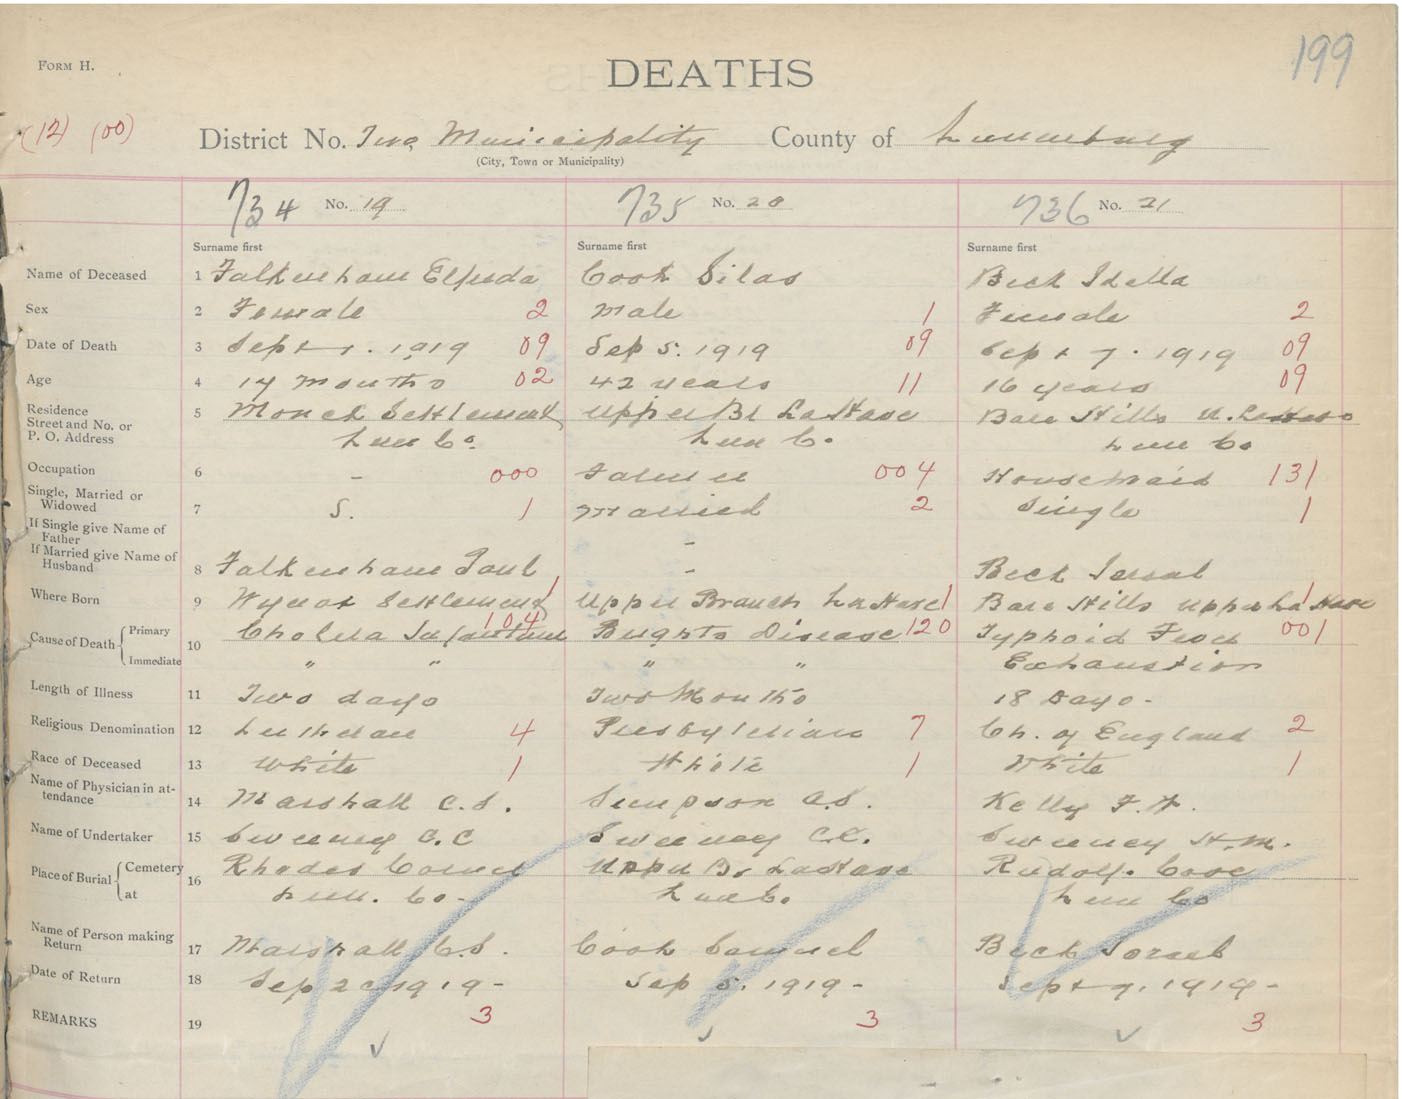 FORM H.
DEATHS
199
(12) (00)
District No. Two, Municipality County of Lunenburg
(City, Town or Municipality)
734 No. 19 735 No. 20 736 No. 21
Surname first Surname first Surname first
Name of Deceased 1 Falkenham Cook Silas Beck Idella
Sex 2 Female 2 Male 1 Female 2
Date of Death 3 Sept 1. 1919 09 Sep 5. 1919 09 Sept 7. 1919 09
Age 4 months 02 42 years 11 16 years 09
Residence
Street and No. or
P. O. Address
5 Settlement Upper Br LaHave Bare Hills U. LaHave
Lun Co. Lun Co. Lun Co
Occupation 6 - 000 Farmer 004 Housemaid 131
Single, Married or
Widowed
7 S. 1 Married 2 Single 1
If Single give Name of
Father
-
If Married give Name of
Husband
8 Falkenham Paul - Beck
Where Born 9 Settlement 1 Upper Branch LaHave 1 Bare Hills Upper LaHave 1
Cause of Death { Primary 10 Cholera Infantum 104 Brights Disease 120 Typhoid Fever 001
Immediate " " " " Exhaustion
Length of Illness 11 Two days Two Months 18 Days -
Religious Denomination 12 Lutheran 4 Presbyterian 7 Ch. of England 2
Race of Deceased 13 White 1 White 1 White 1
Name of Physician in at-
tendance
14 Marshall C.S. Simpson Kelly F.
Name of Undertaker 15 Sweeney C.C Sweeney C.C. Sweeney H.M.
Place of Burial { Cemetery 16 Rhodes Corner Upper Br LaHave Rudolf. Cove
at Lun. Co - Lun Co. Lun Co
Name of Person making
Return
17 Marshall C.S. Cook Samuel Beck
Date of Return 18 Sep 1919 - Sep 5. 1919 - Sept 7. 1919 -
REMARKS 19 3 3 3